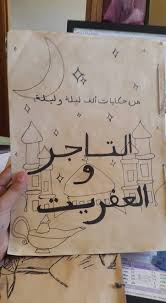 من حكايات ألف ليلة وليلة
التاجر
و
العفريت